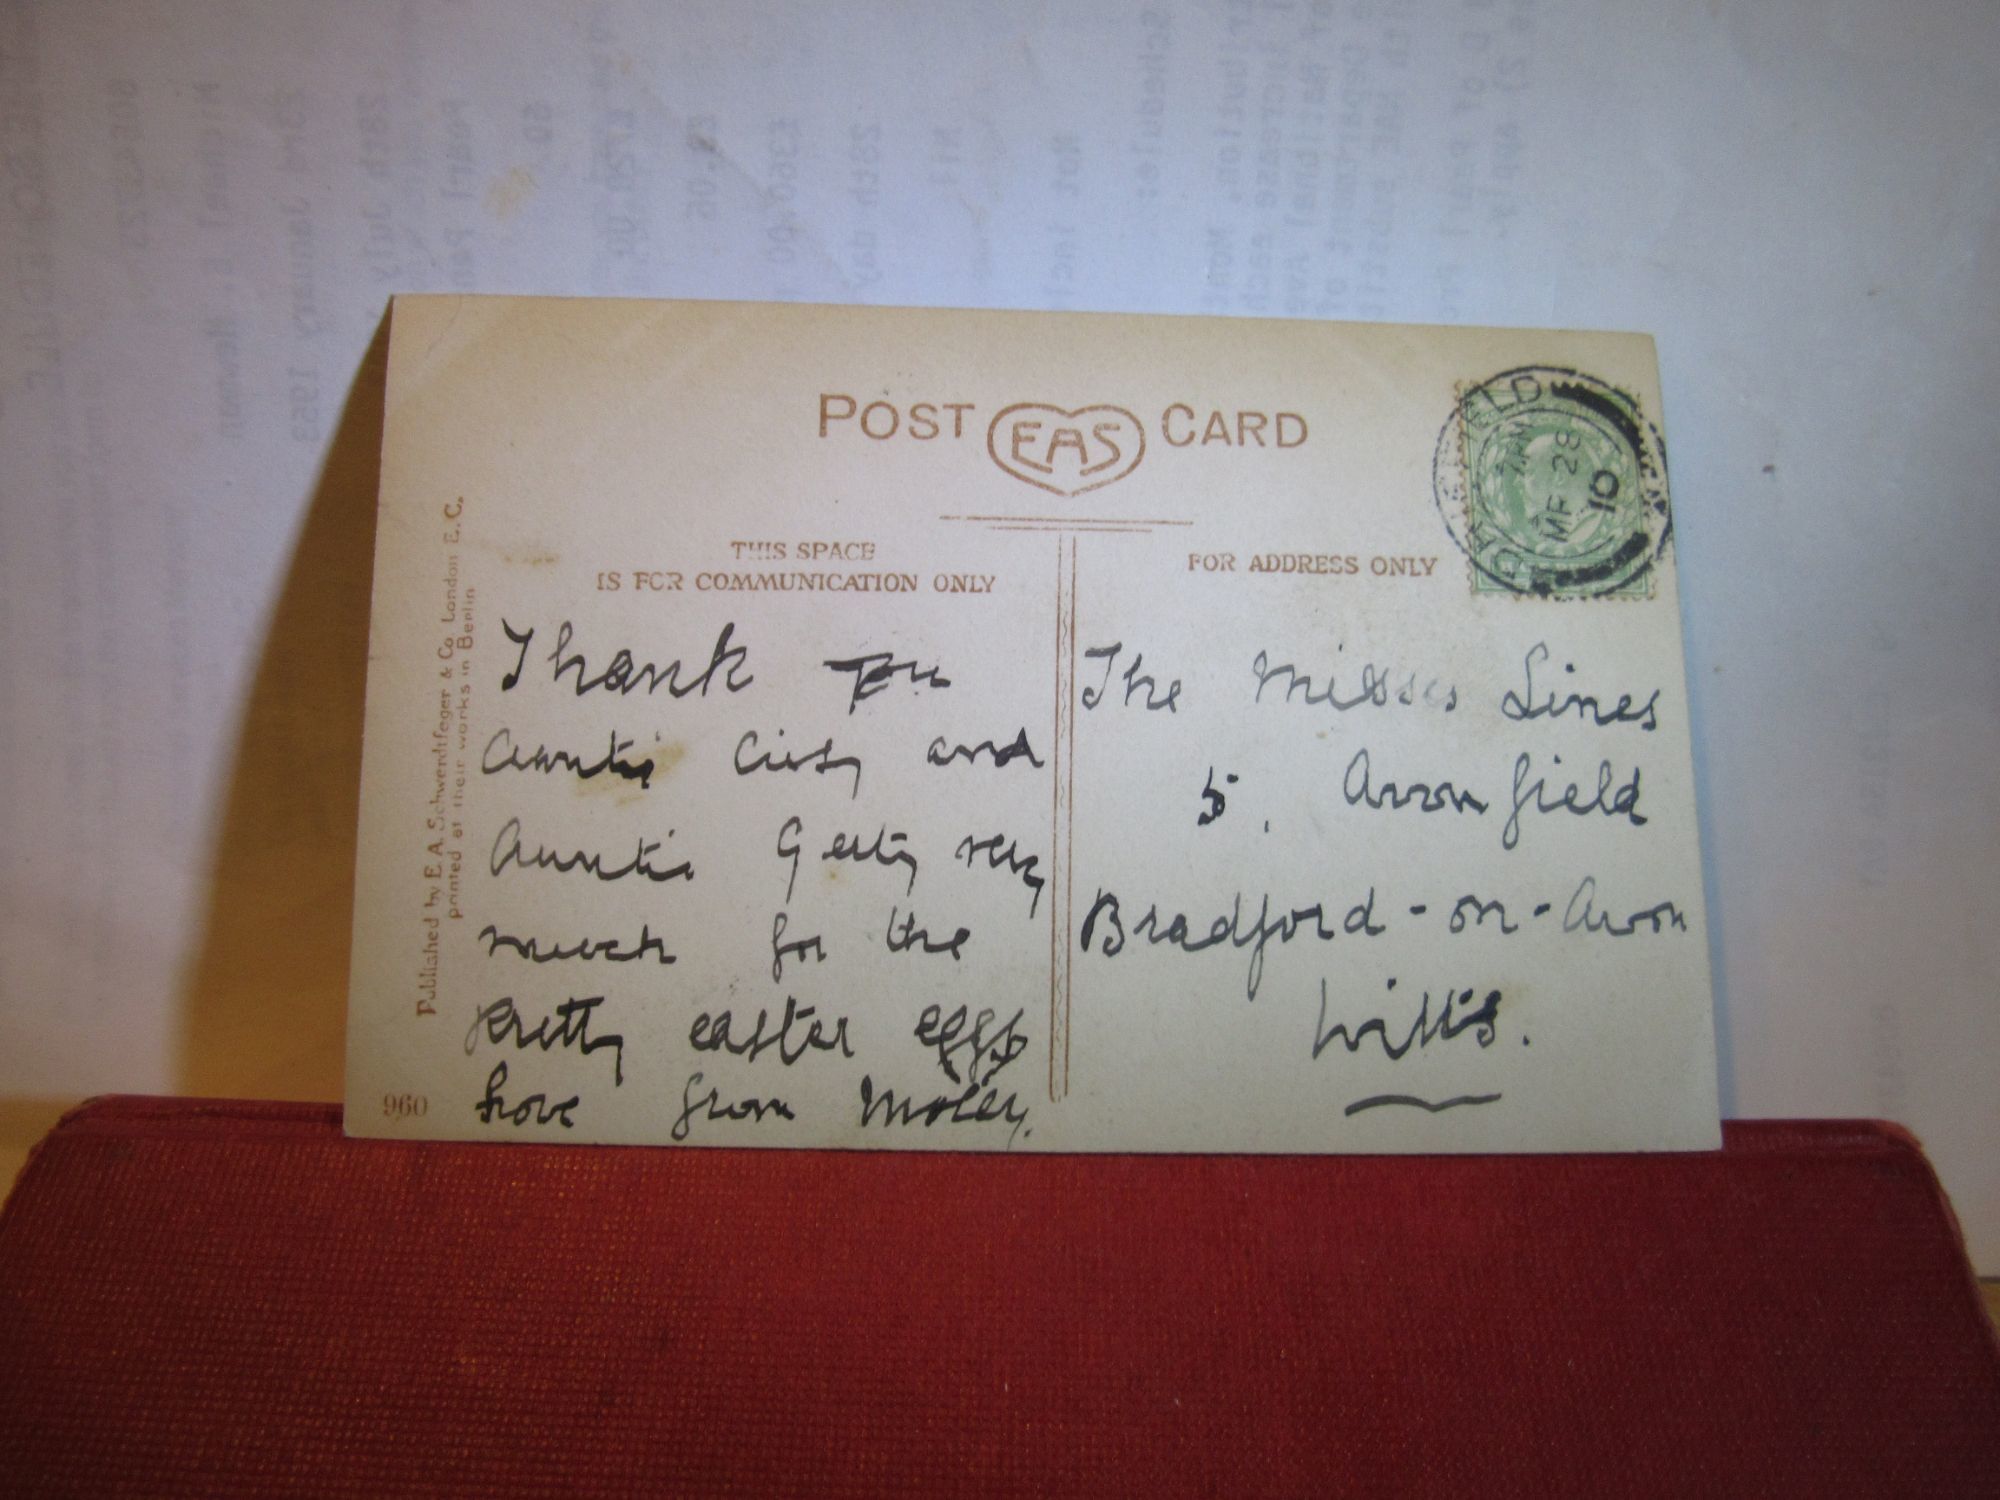 POST EAS CARD
THIS SPACE
IS FOR COMMUNICATION ONLY
FOR ADDRESS ONLY
MR 28
10
Published by E. A. Schwerdtfeger & Co London E. C.
printed at their works in Berlin
960
Thank you
Auntie and
Auntie Gerty very
much for the
pretty easter eggs
Love from Molly.
The Misses Lines
5, Avonfield
Bradford-on-Avon
Wilts.
23rd January 1953
28th July
£360.00
28th day
Schedule: